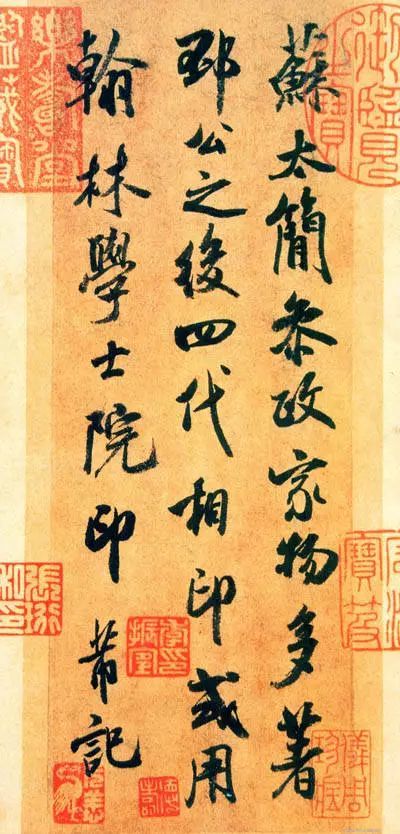 蘇太簡參政家物多著
邳公之後四代相印或用
翰林學士院印 芾記
儀周珍藏